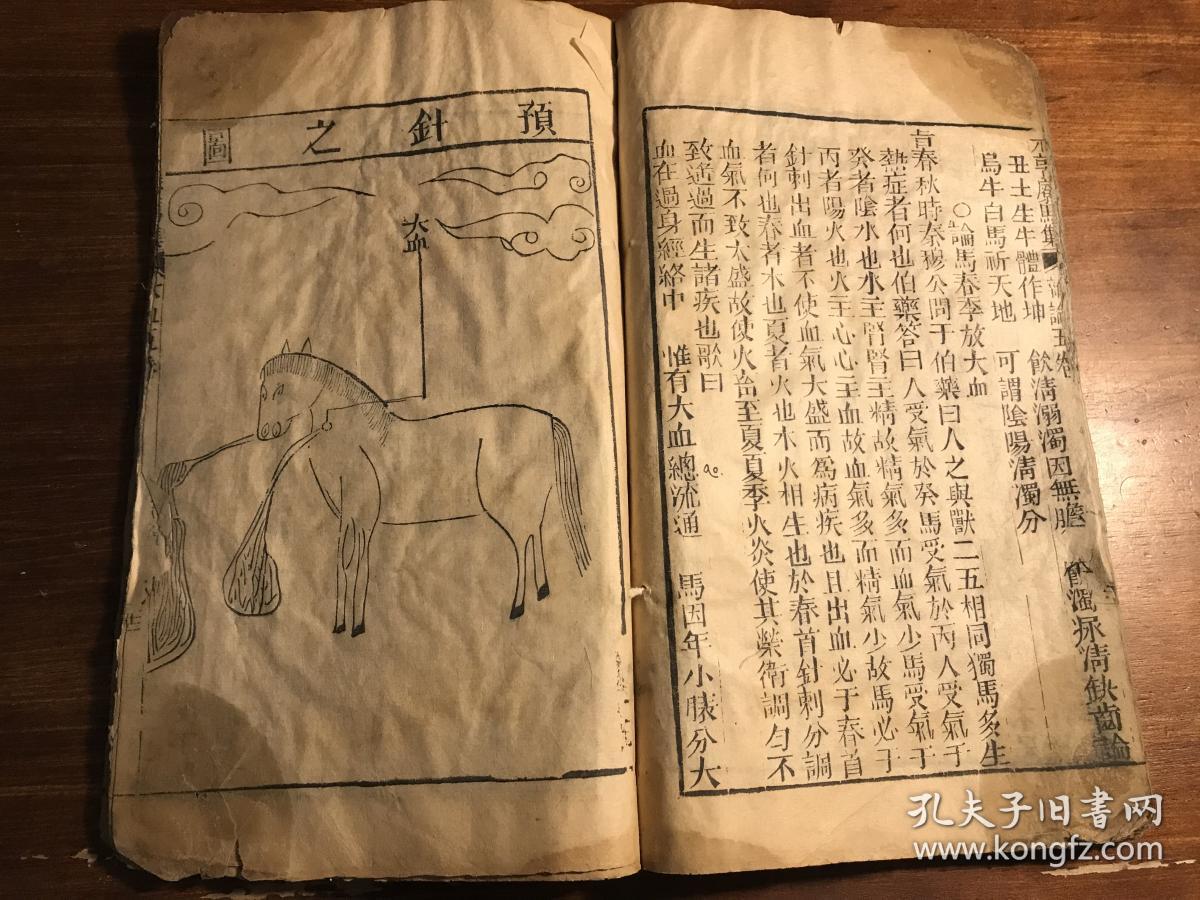 丑土生牛體作坤　飲淸溺濁因無膽　飲濁尿淸缺齒論
烏牛白馬祈天地　可謂陰陽淸濁分
○論馬春季放大血
昔春秋時秦穆公問于伯藥曰人之與獸二五相同獨馬多生
熱症者何也伯藥答曰人受氣於癸馬受氣於丙人受氣于
癸者陰水也水主腎腎主精故精氣多而血氣少馬受氣于
丙者陽火也火主心心主血故血氣多而精氣少故馬必于
針刺出血者不使血氣大盛而爲病疾也且出血必于春首
者何也春者木也夏者火也木火相生也於春首針刺分調
血氣不致太盛故使火台至夏夏季火炎使其榮衛調勻不
致遙過而生諸疾也歌曰
血在過身經絡中　惟有大血總流通　馬因年小膘分大
預針之圖
大血
孔夫子旧书网
www.kongfz.com